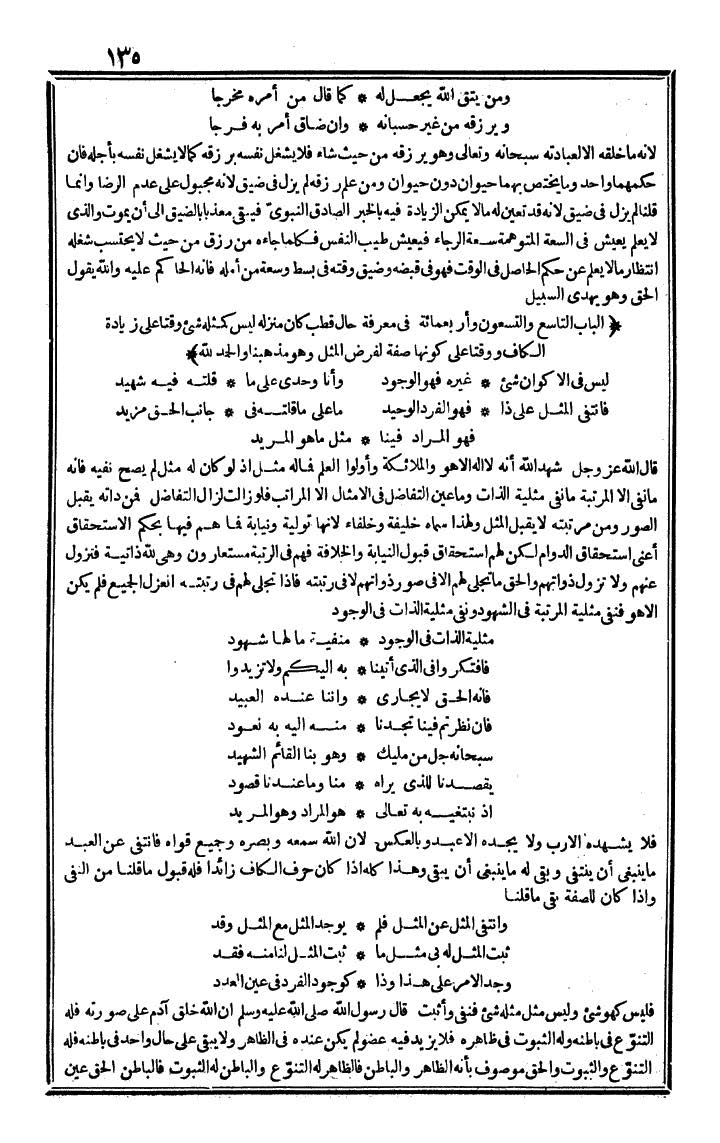 ١٣٥
ومن يتق الله يجعل له * كما قال من أمره مخرجا
ويرزقه من غير حسبانه * وان ضاق أمر به فرجا
لانه ما خلقه الا لعبادته سبحانه وتعالى وهو يرزقه من حيث شاء فلا يشغل نفسه برزقه كما لا يشغل نفسه بأجله فان
حكمهما واحد وما يختص بهما حيوان دون حيوان ومن علم رزقه لم يزل فى ضيق لانه مجبول على عدم الرضا وانما
قلنا لم يزل فى ضيق لانه قد تعين له ما لا يمكن الزيادة فيه بالخبر الصادق النبوىّ فيبقى معذبا بالضيق الى أن يموت والذى
لا يعلم يعيش فى السعة المتوهمة سعة الرجاء فيعيش طيب النفس فكلما جاءه من رزق من حيث لا يحتسب شغله
انتظار ما لا يعلم عن حكم الحاصل فى الوقت فهو فى قبضه وضيق وقته فى بسط وسعة من أمله فانه الحاكم عليه والله يقول
الحق وهو يهدى السبيل
﴿ الباب التاسع والتسعون وأربعمائة فى معرفة حال قطب كان منزله ليس كمثله شئ وقتا على زيادة
الكاف ووقتا على كونها صفة لفرض المثل وهو مذهبنا والحمد لله ﴾
ليس فى الاكوان شئ * غيره فهو الوجود وأنا وحدى على ما * قلته فيه شهيد
فانتفى المثل على ذا * فهو الفرد الوحيد ما على ما قلته فى * جانب الحق مزيد
فهو المراد فينا * مثل ما هو المريد
قال الله عز وجل شهد الله أنه لا اله الا هو والملائكة وأولوا العلم فماله مثل اذ لو كان له مثل لم يصح نفيه فانه
ما نفى الا المرتبة ما نفى مثلية الذات وما عين التفاضل فى الامثال الا المراتب فلو زالت لزال التفاضل فمن ذاته يقبل
الصور ومن مرتبته لا يقبل المثل ولهذا سماه خليفة وخلفاء لانها تولية ونيابة فما هم فيها بحكم الاستحقاق
أعنى استحقاق الدوام لكن لهم استحقاق قبول النيابة والخلافة فهم فى الرتبة مستعارون وهى لله ذاتية فتزول
عنهم ولا تزول ذواتهم والحق ما تجلى لهم الا فى صور ذواتهم لا فى رتبته فاذا تجلى لهم فى رتبته انعزل الجميع فلم يكن
الا هو فنفى مثلية المرتبة فى الشهود ونفى مثلية الذات فى الوجود
مثلية الذات فى الوجود * منفية ما لها شهود
فافتكروا فى الذى أتينا * به اليكم ولا تزيدوا
فانه الحق لا يجارى * واننا عنده العبيد
فان نظرتم فينا تجدنا * منه اليه به نعود
سبحانه جل من مليك * وهو بنا القائم الشهيد
يقصدنا للذى يراه * منا وما عندنا قصود
اذ نبتغيه به تعالى * هو المراد وهو المريد
فلا يشهده الا رب ولا يجده الا عبد وبالعكس لان الله سمعه وبصره وجميع قواه فانتفى عن العبد
ما ينبغى أن ينتفى وبقى له ما ينبغى أن يبقى وهذا كله اذا كان حرف الكاف زائدا فله قبول ما قلنا من النفى
واذا كان للصفة بقى ما قلنا
وانتفى المثل عن المثل فلم * يوجد المثل مع المثل وقد
ثبت المثل له بى مثل ما * ثبت المثل لنا منه فقد
وجد الامر على هذا وذا * كوجود الفرد فى عين العدد
فليس كهو شئ وليس مثل مثله شئ فنفى وأثبت قال رسول الله صلى الله عليه وسلم ان الله خلق آدم على صورته فله
التنوّع فى باطنه وله الثبوت فى ظاهره فلا يزيد فيه عضو لم يكن عنده فى الظاهر ولا يبقى على حال واحد فى باطنه فله
التنوّع والثبوت والحق موصوف بأنه الظاهر والباطن فالظاهر له التنوّع والباطن له الثبوت فالباطن الحق عين